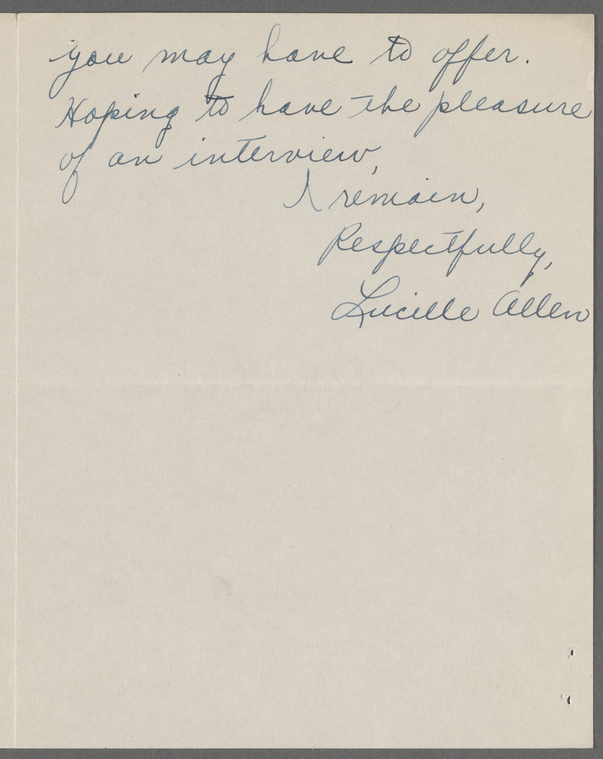 you may have to offer.
Hoping to have the pleasure
of an interview,
I remain,
Respectfully,
Lucille Allen